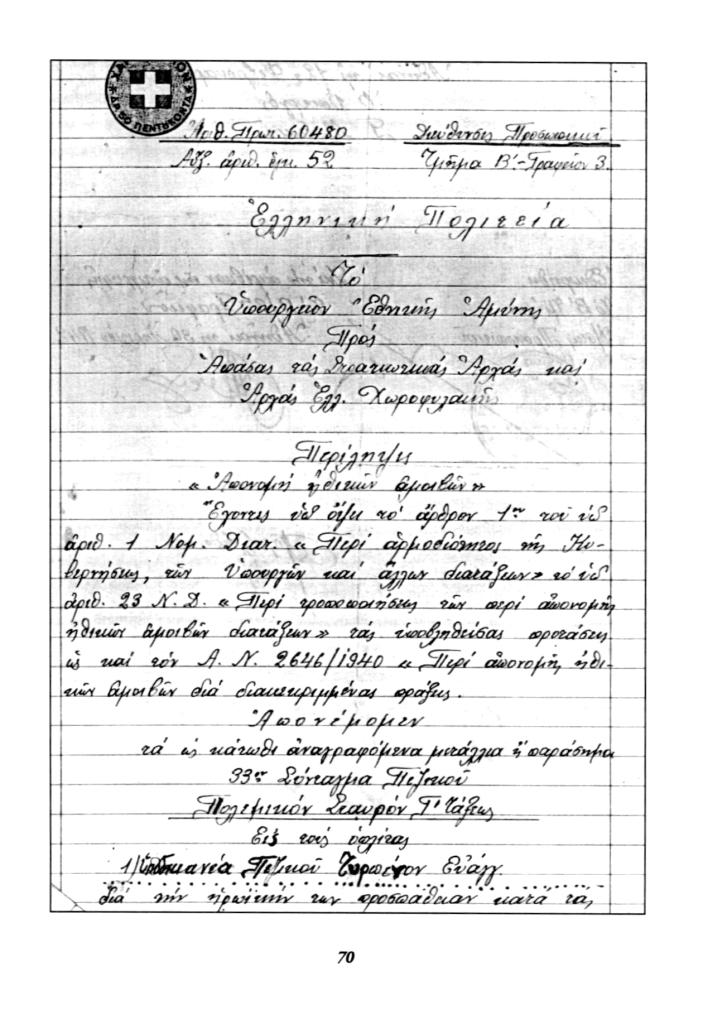 ΔΡ. 50 ΠΕΝΤΗΚΟΝΤΑ
Ἀριθ. Πρωτ. 60480 Διεύθυνσις Προσωπικοῦ
Αὔξ. ἀριθ. ἐγκ. 52 Τμῆμα Β'- Γραφεῖον 3.
Ἑλληνική Πολιτεία
Τό
Ὑπουργεῖον Ἐθνικῆς Ἀμύνης
Πρός
Ἁπάσας τάς Στρατιωτικάς Ἀρχάς καί
Ἀρχάς Ἑλλ. Χωροφυλακῆς
Περίληψις
«Ἀπονομή ἠθικῶν ἀμοιβῶν»
Ἔχοντες ὑπ' ὄψει τό ἄρθρον 1ον τοῦ ὑπ
ἀριθ. 1 Νομ. Διατ. «Περί ἁρμοδιότητος τῆς Κυ-
βερνήσεως, τῶν Ὑπουργῶν καί ἄλλων διατάξεων» τό ὑπ
ἀριθ. 23 Ν.Δ. «Περί τροποποιήσεως τῶν περί ἀπονομῆς
ἠθικῶν ἀμοιβῶν διατάξεων» τάς ὑποβληθείσας προτάσεις
ὡς καί τόν Α.Ν. 2646/1940 «Περί ἀπονομῆς ἠθι-
κῶν ἀμοιβῶν διά διακεκριμμένας πράξεις.
Ἀπονέμομεν
τά ὡς κάτωθι ἀναγραφόμενα μετάλλια ἤ παράσημα
33ον Σύνταγμα Πεζικοῦ
Πολεμικόν Σταυρόν Γ' Τάξεως
Εἰς τούς ὁπλίτας
1/ Πεζικοῦ Εὐάγγ.
διά τήν ἡρωϊκήν των προσπάθειαν κατά τάς
70